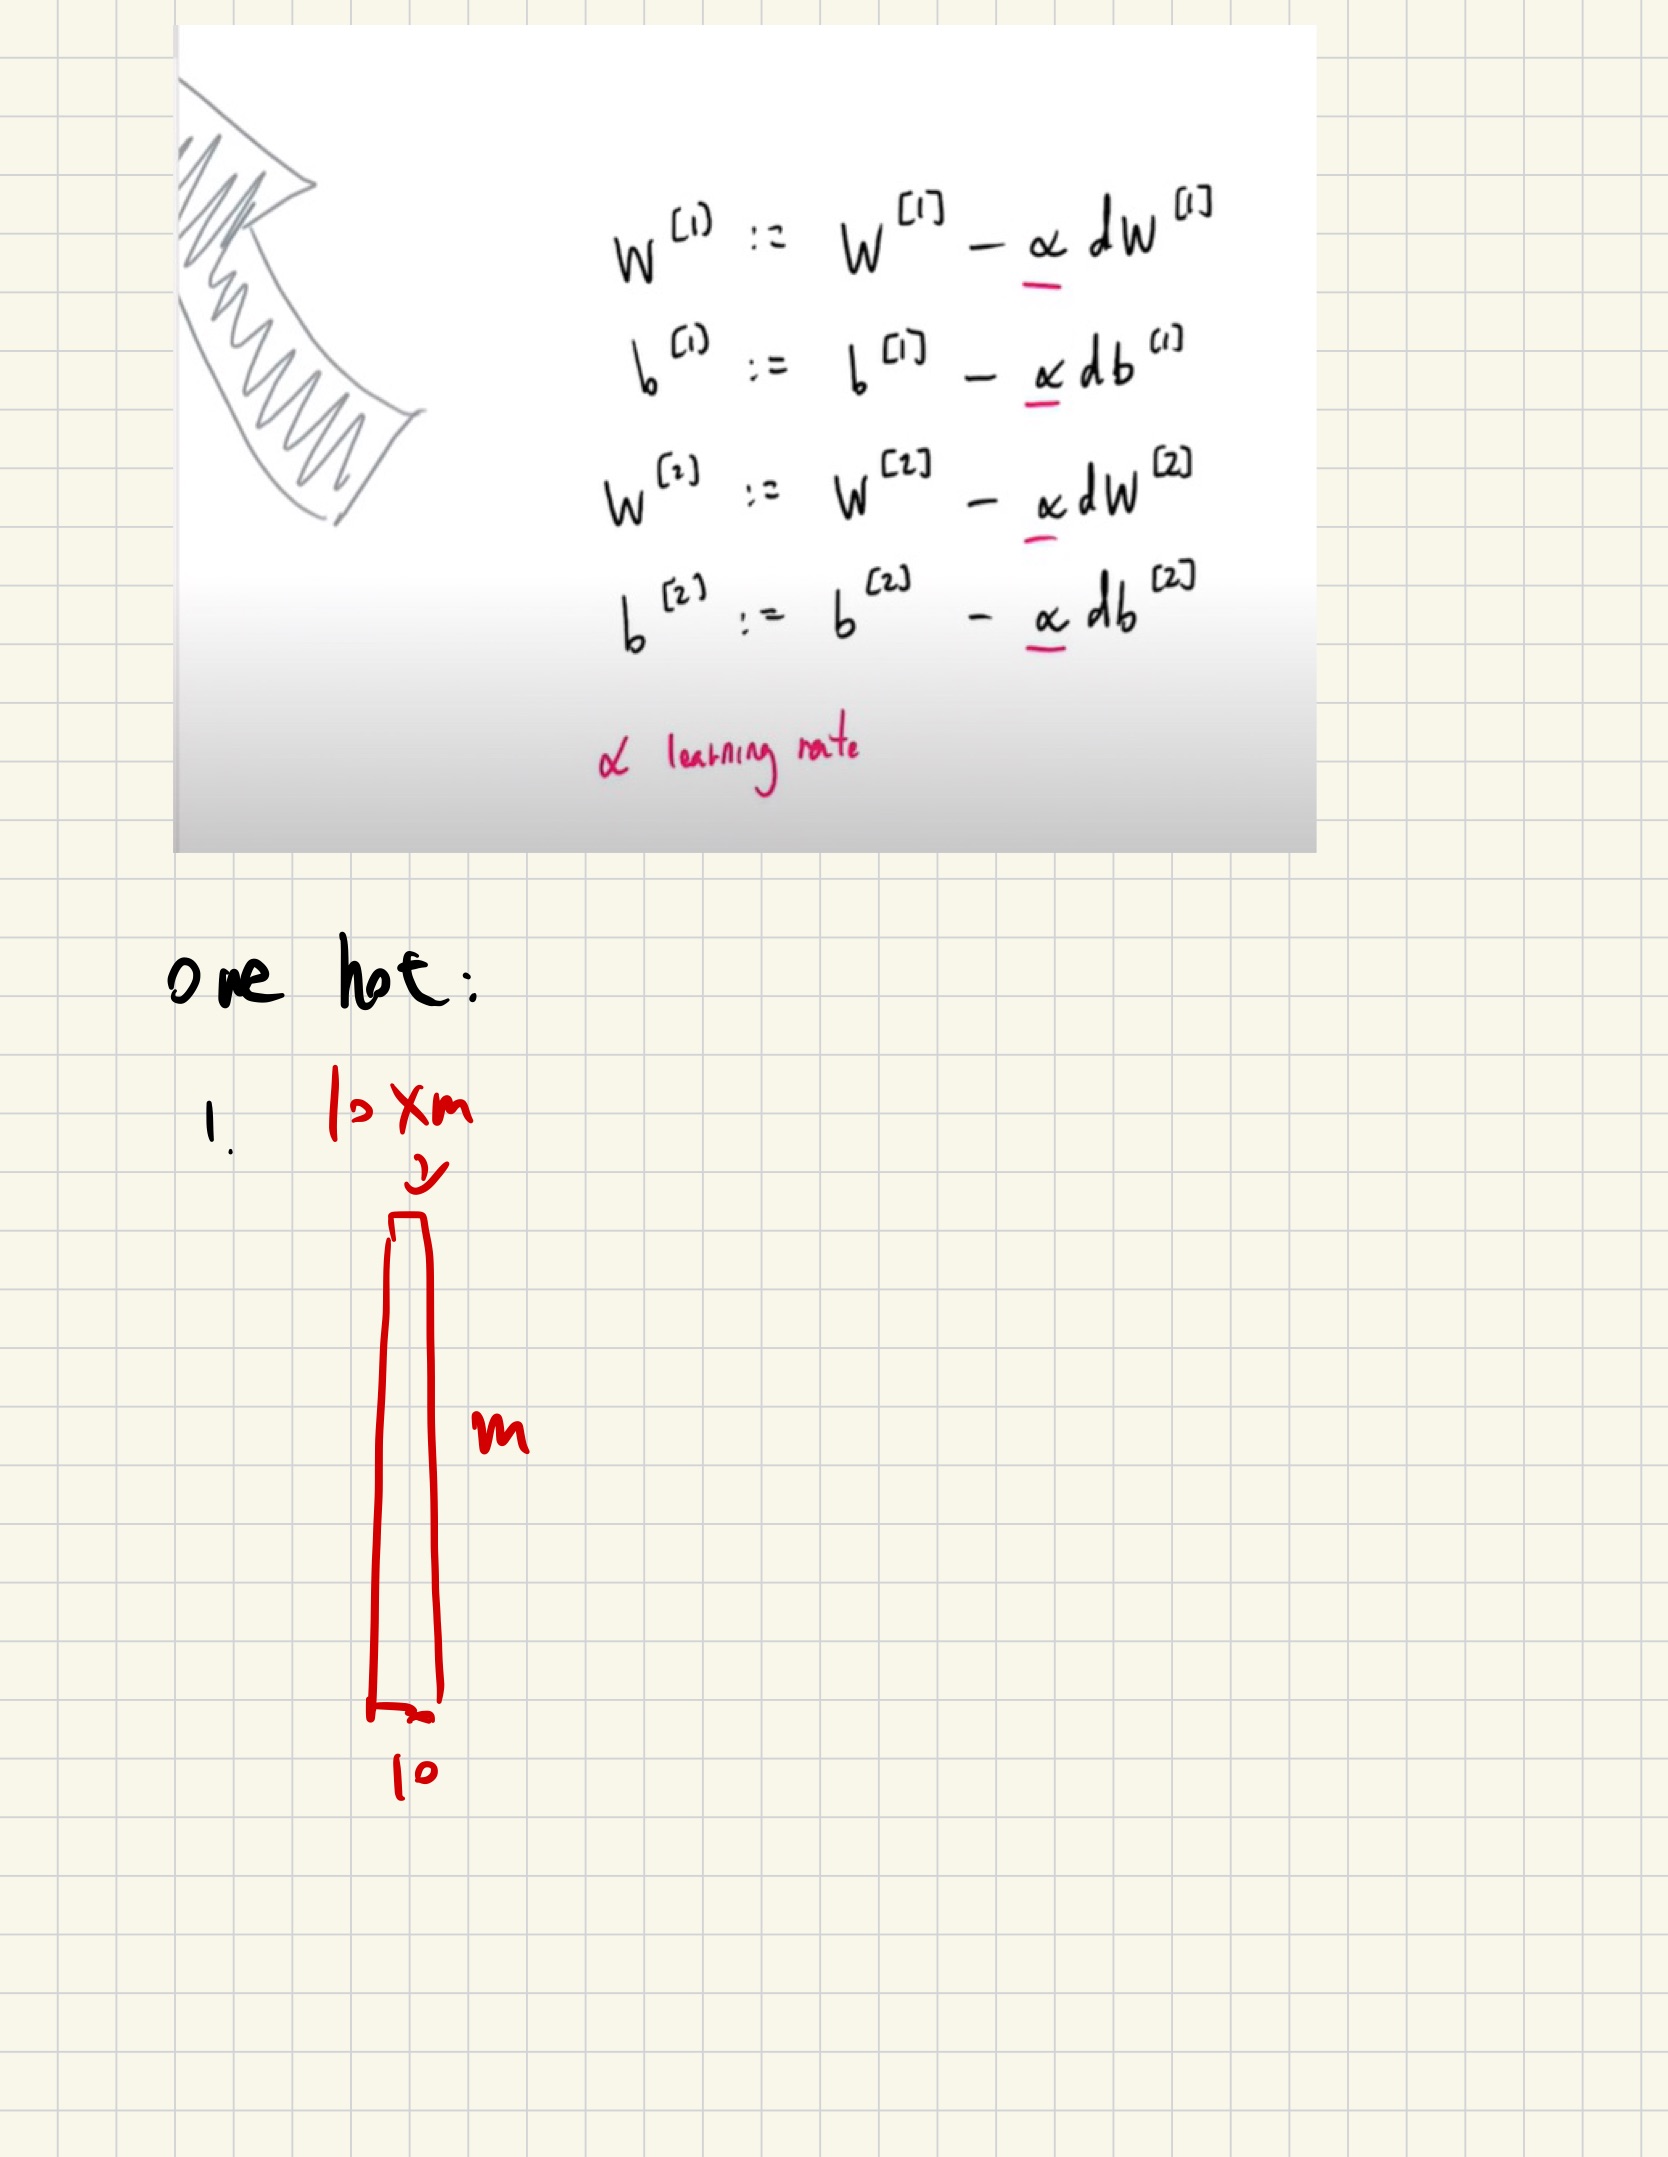 W^[1] := W^[1] - α dW^[1]
b^[1] := b^[1] - α db^[1]
W^[2] := W^[2] - α dW^[2]
b^[2] := b^[2] - α db^[2]
α learning rate
one hot:
1. 10 x m
m
10